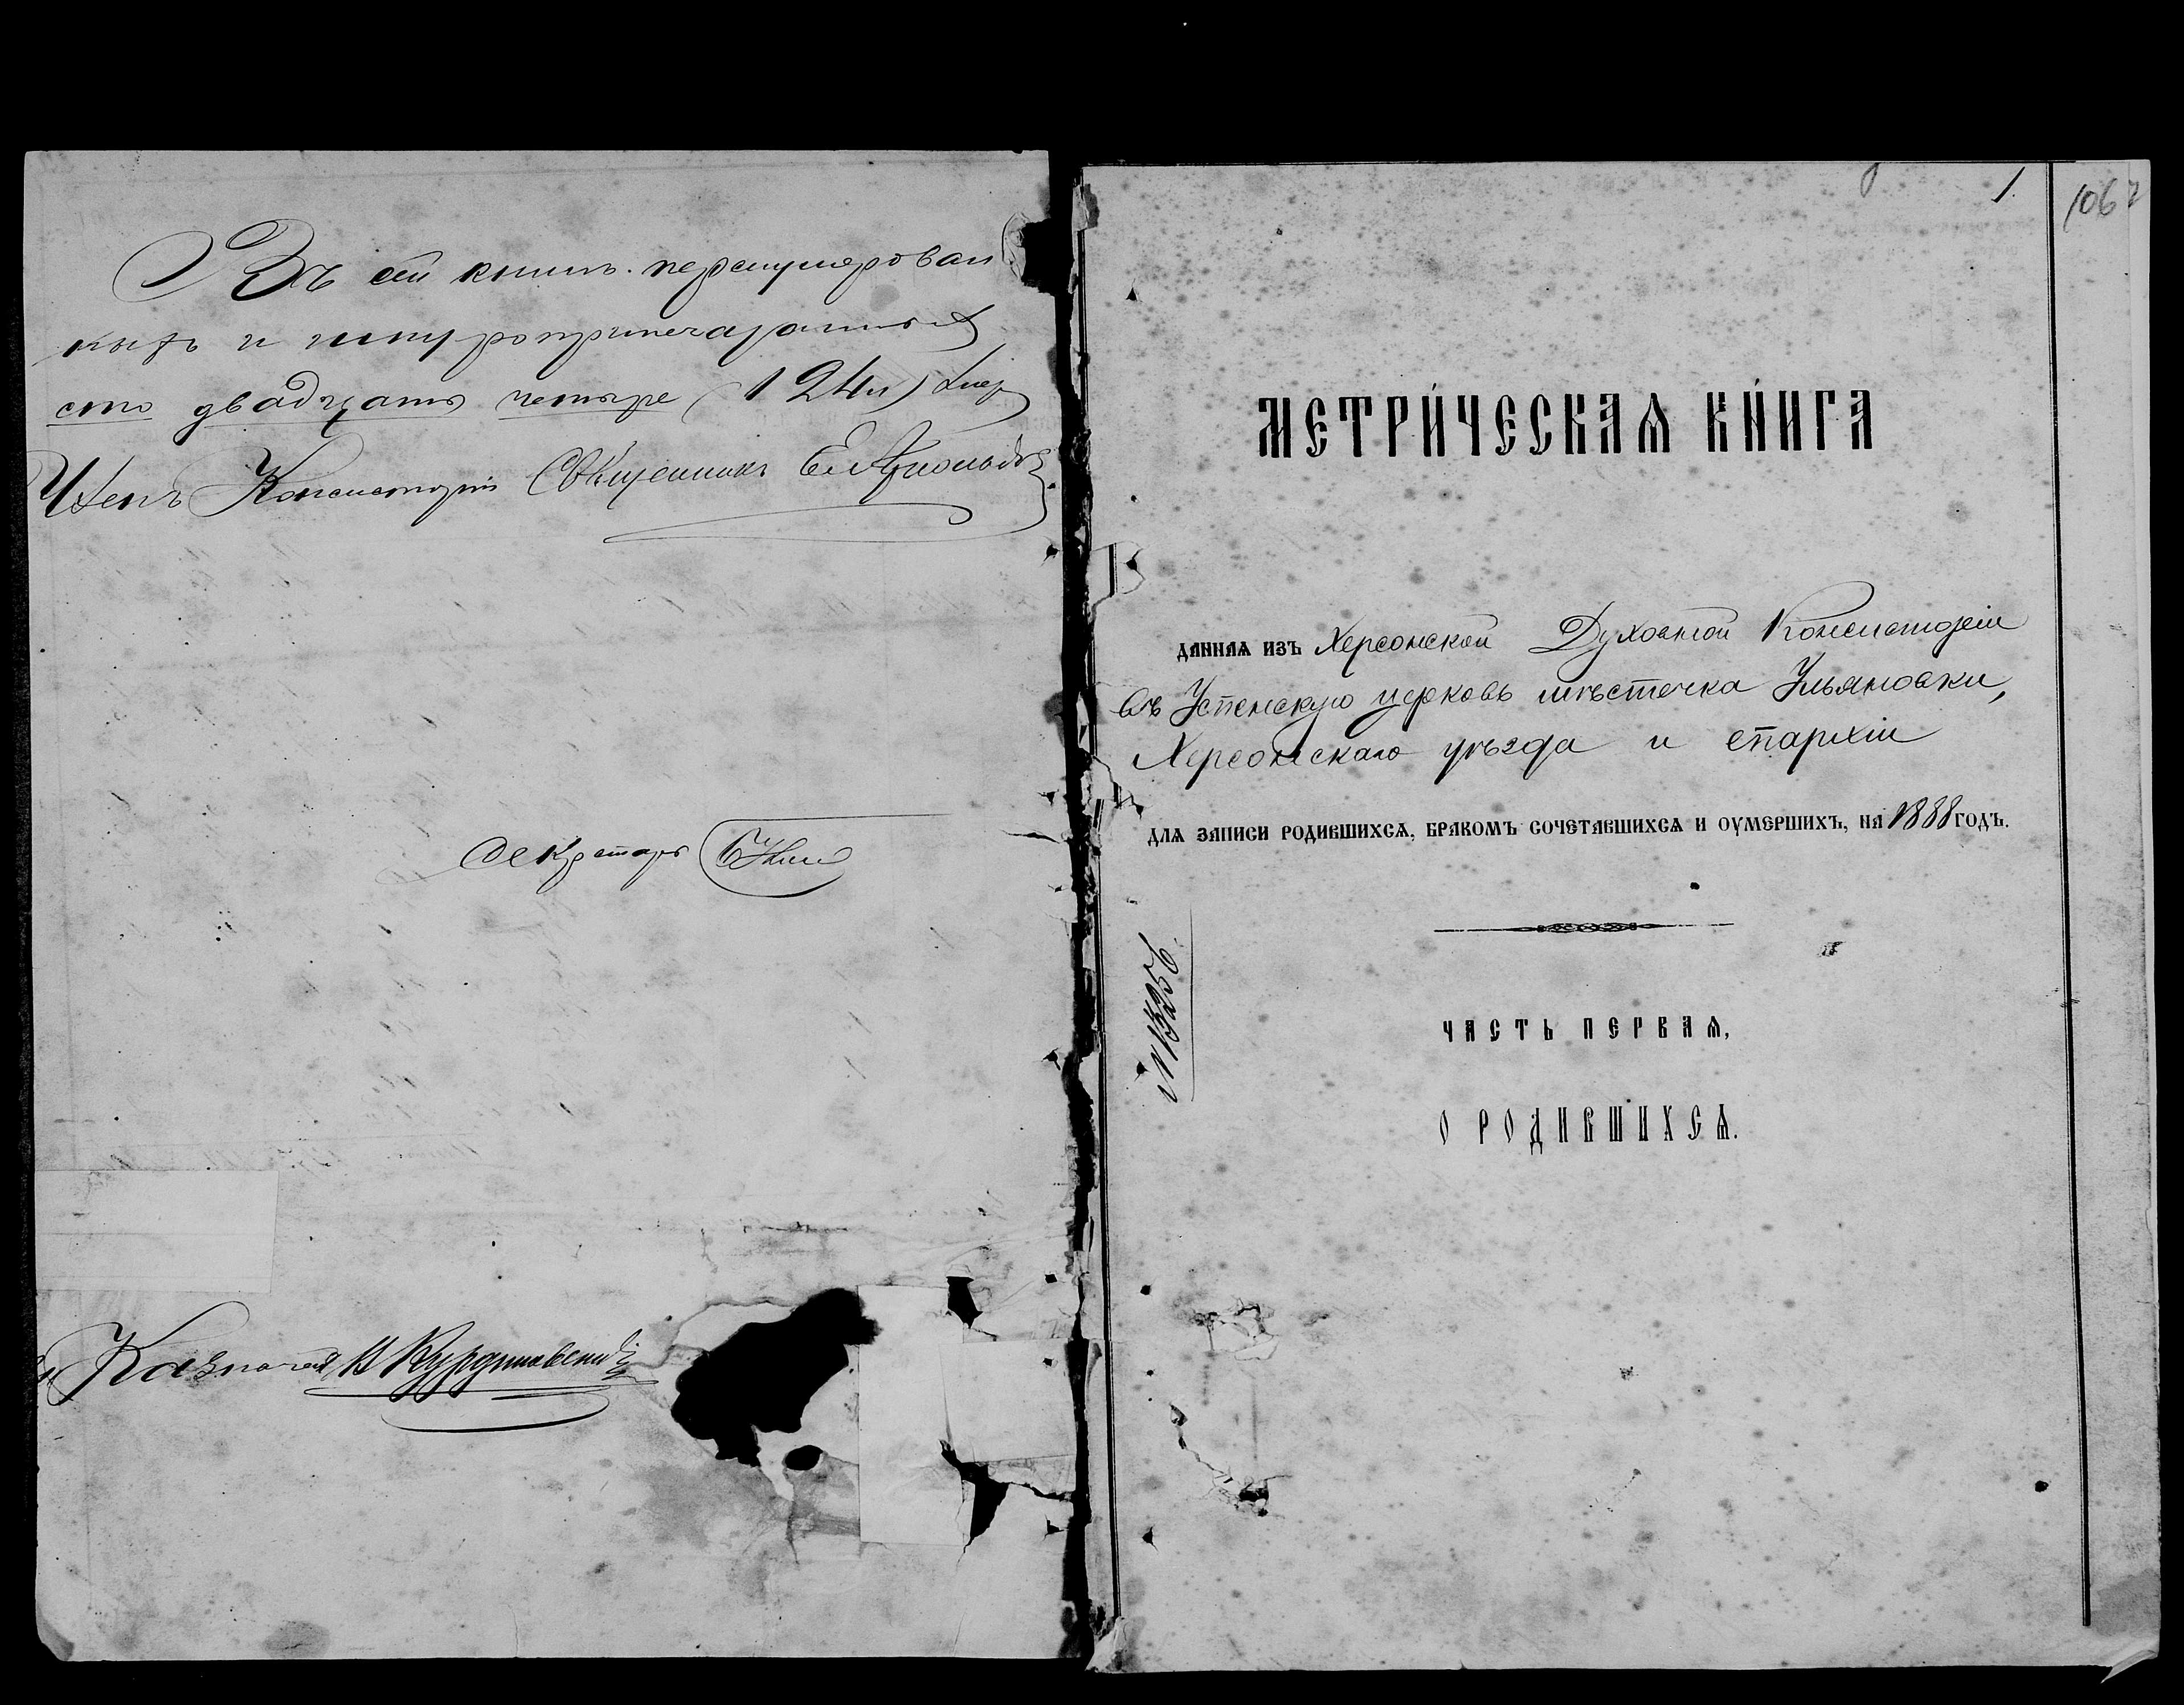 Въ сей книгѣ перенумерован
ныхъ и шнуроприпечатанныхъ
сто двадцать четыре (124 л) лис
Членъ Консисторіи Священникъ
Секретарь
Казначей
1.
106
МЕТРИ́ЧЕСКАѦ КНИ́ГА
ДАННАѦ ИЗЪ Херсонской Духовной Консисторіи
въ Успенскую церковь мѣстечка Ульяновки,
Херсонскаго уѣзда и епархіи
ДЛѦ ЗАПИСИ РОДИВШИХСѦ, БРАКОМЪ СОЧЕТАВШИХСѦ И ОУМЕРШИХЪ, НА 1888 ГОДЪ.
№ 13256.
ЧАСТЬ ПЕРВАѦ,
О РОДИВШИХСѦ.